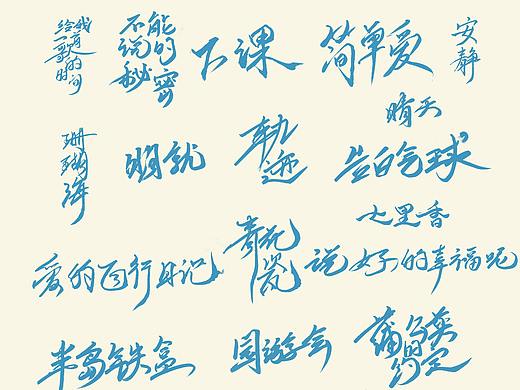 给我一首歌的时间
不能说的秘密
下课
简单爱
安静
珊瑚海
明就
轨迹
晴天
告白气球
七里香
爱的飞行日记
青花瓷
说好的幸福呢
半岛铁盒
园游会
蒲公英的约定